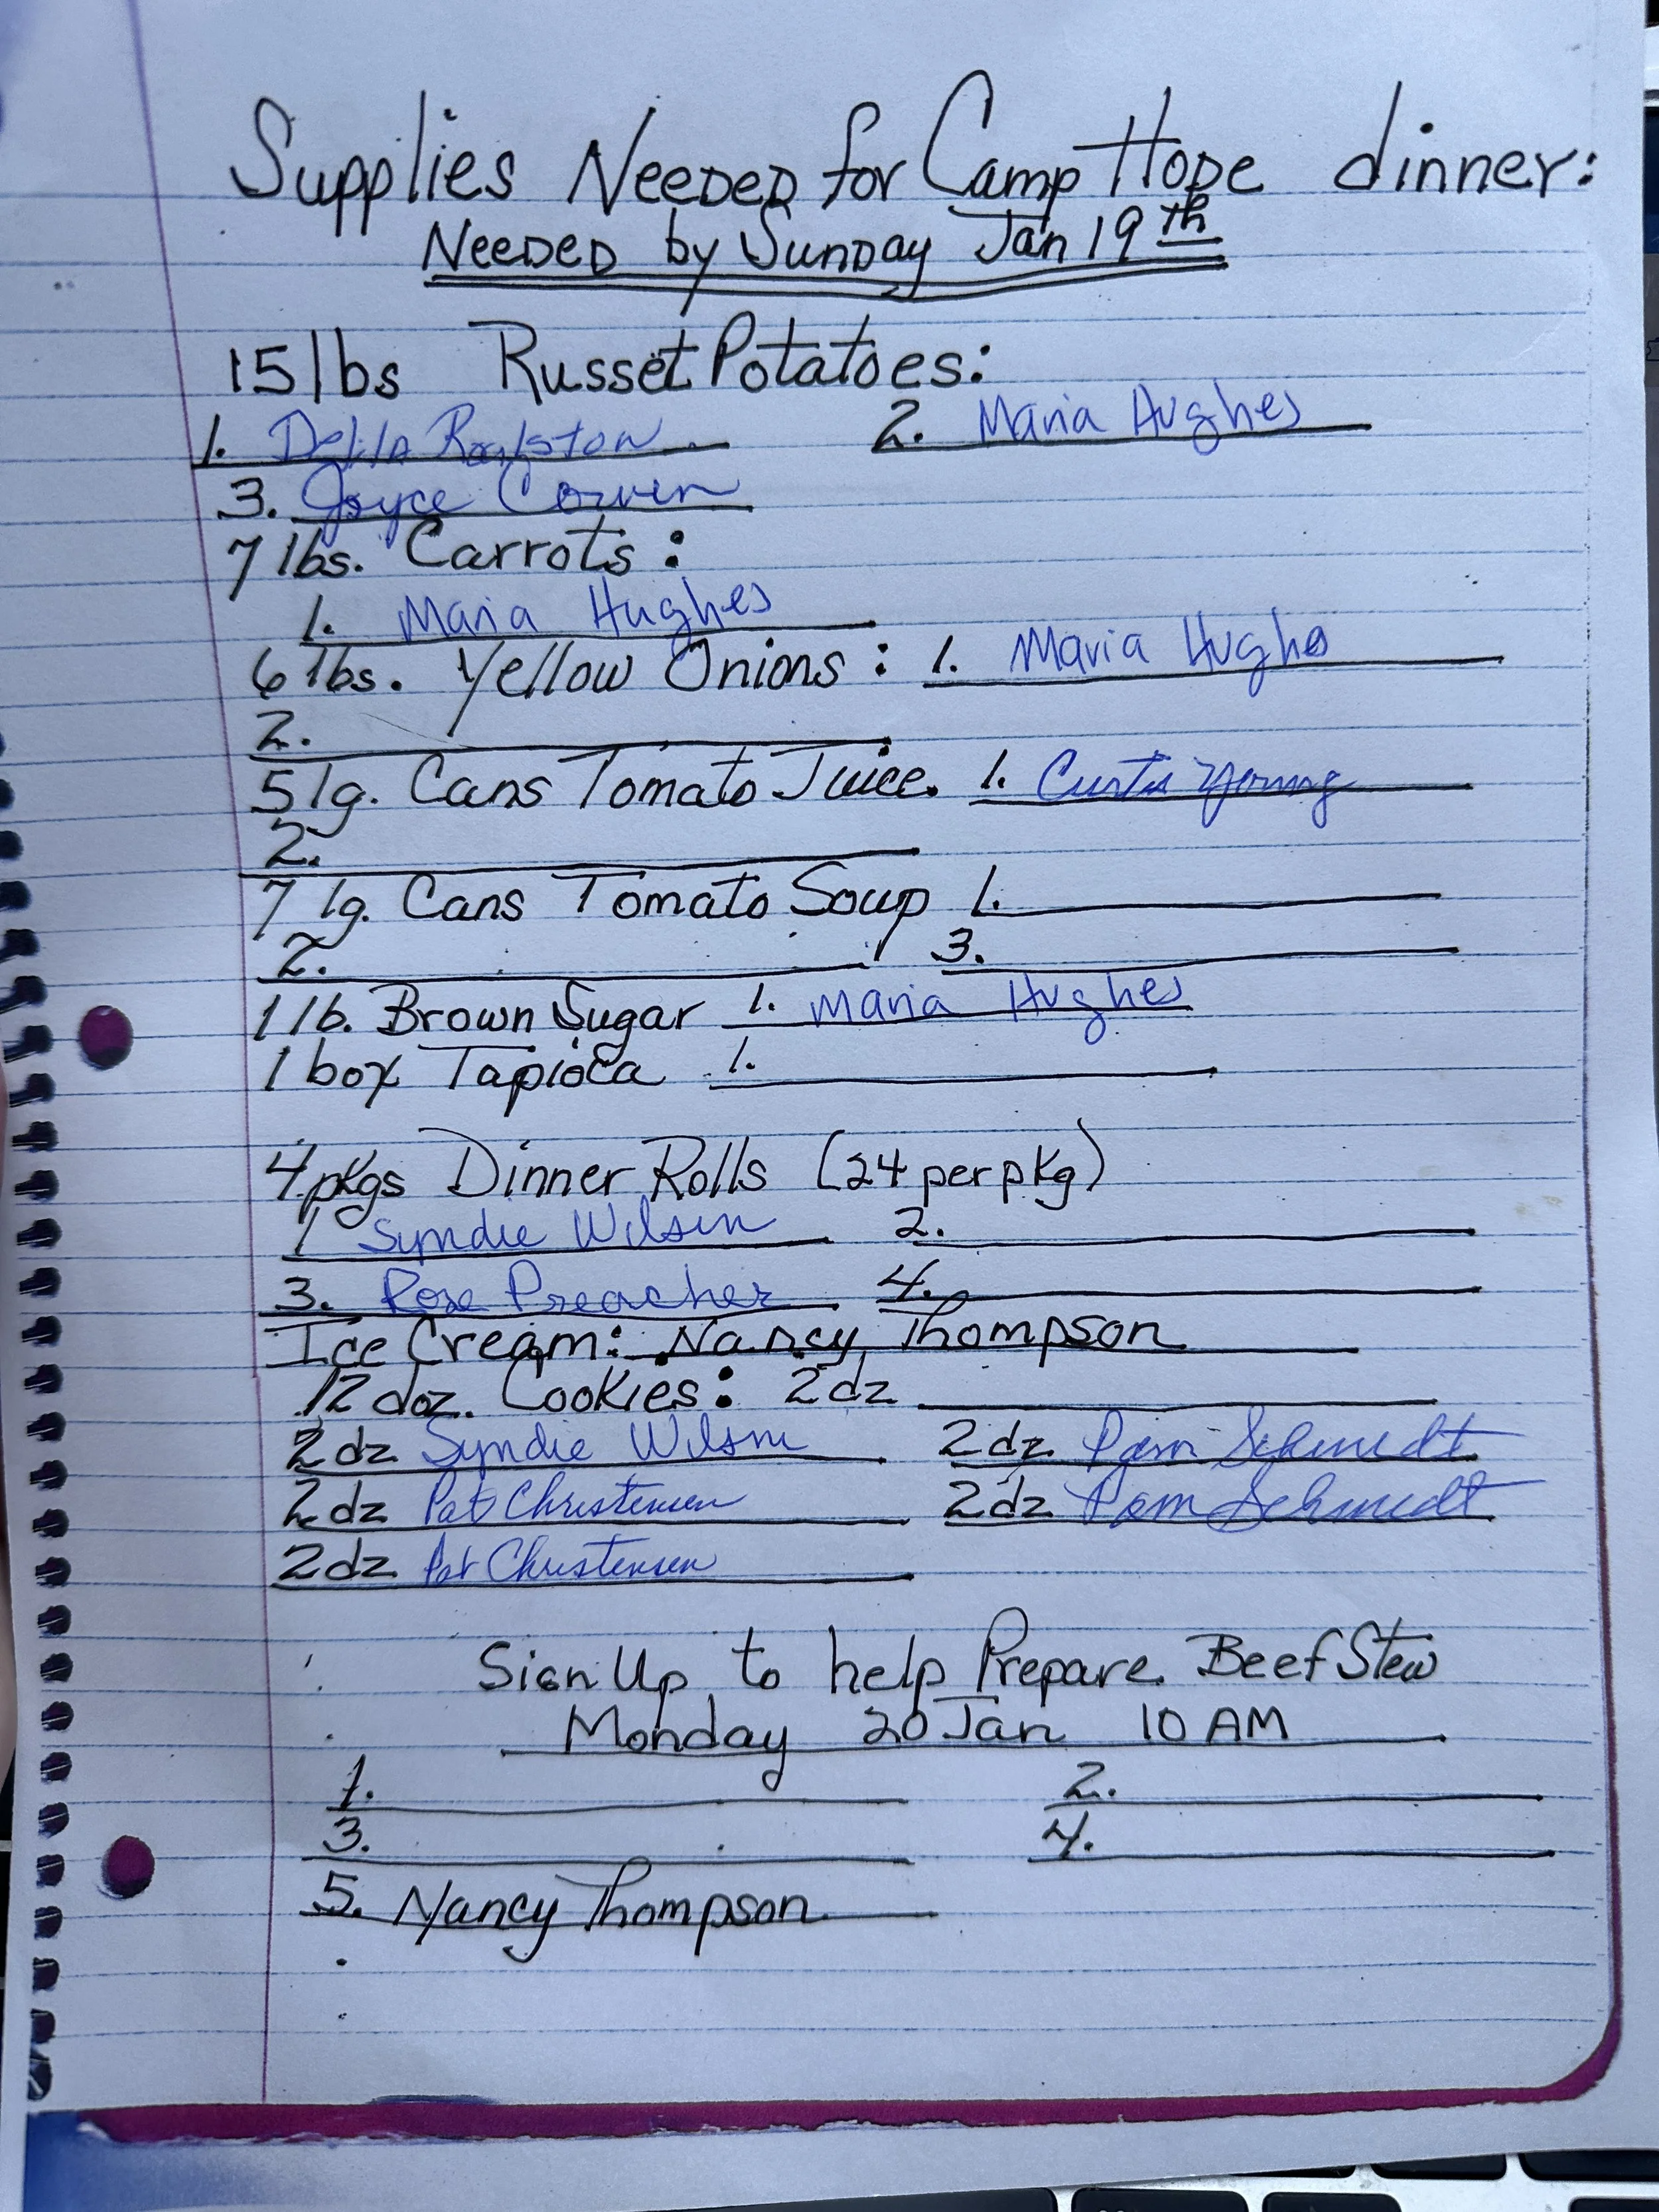 Supplies Needed for Camp Hope dinner:
Needed by Sunday Jan 19th
15 lbs Russet Potatoes:
1. 2. Maria Hughes
3. Joyce
7 lbs. Carrots:
1. Maria Hughes
6 lbs. Yellow Onions: 1. Maria Hughes
2.
5 lg. Cans Tomato Juice. 1. Curtis Young
2.
7 lg. Cans Tomato Soup 1.
2. 3.
1 lb. Brown Sugar 1. Maria Hughes
1 box Tapioca 1.
4 pkgs Dinner Rolls (24 per pkg)
1 Syndie Wilson 2.
3. Rose Preacher 4.
Ice Cream: Nancy Thompson
12 doz. Cookies: 2dz
2dz Syndie Wilson 2dz Pam Schmedt
2dz Pat Christensen 2dz Pam Schmedt
2dz Pat Christensen
Sign Up to help Prepare Beef Stew
Monday 20 Jan 10 AM
1. 2.
3. 4.
5. Nancy Thompson